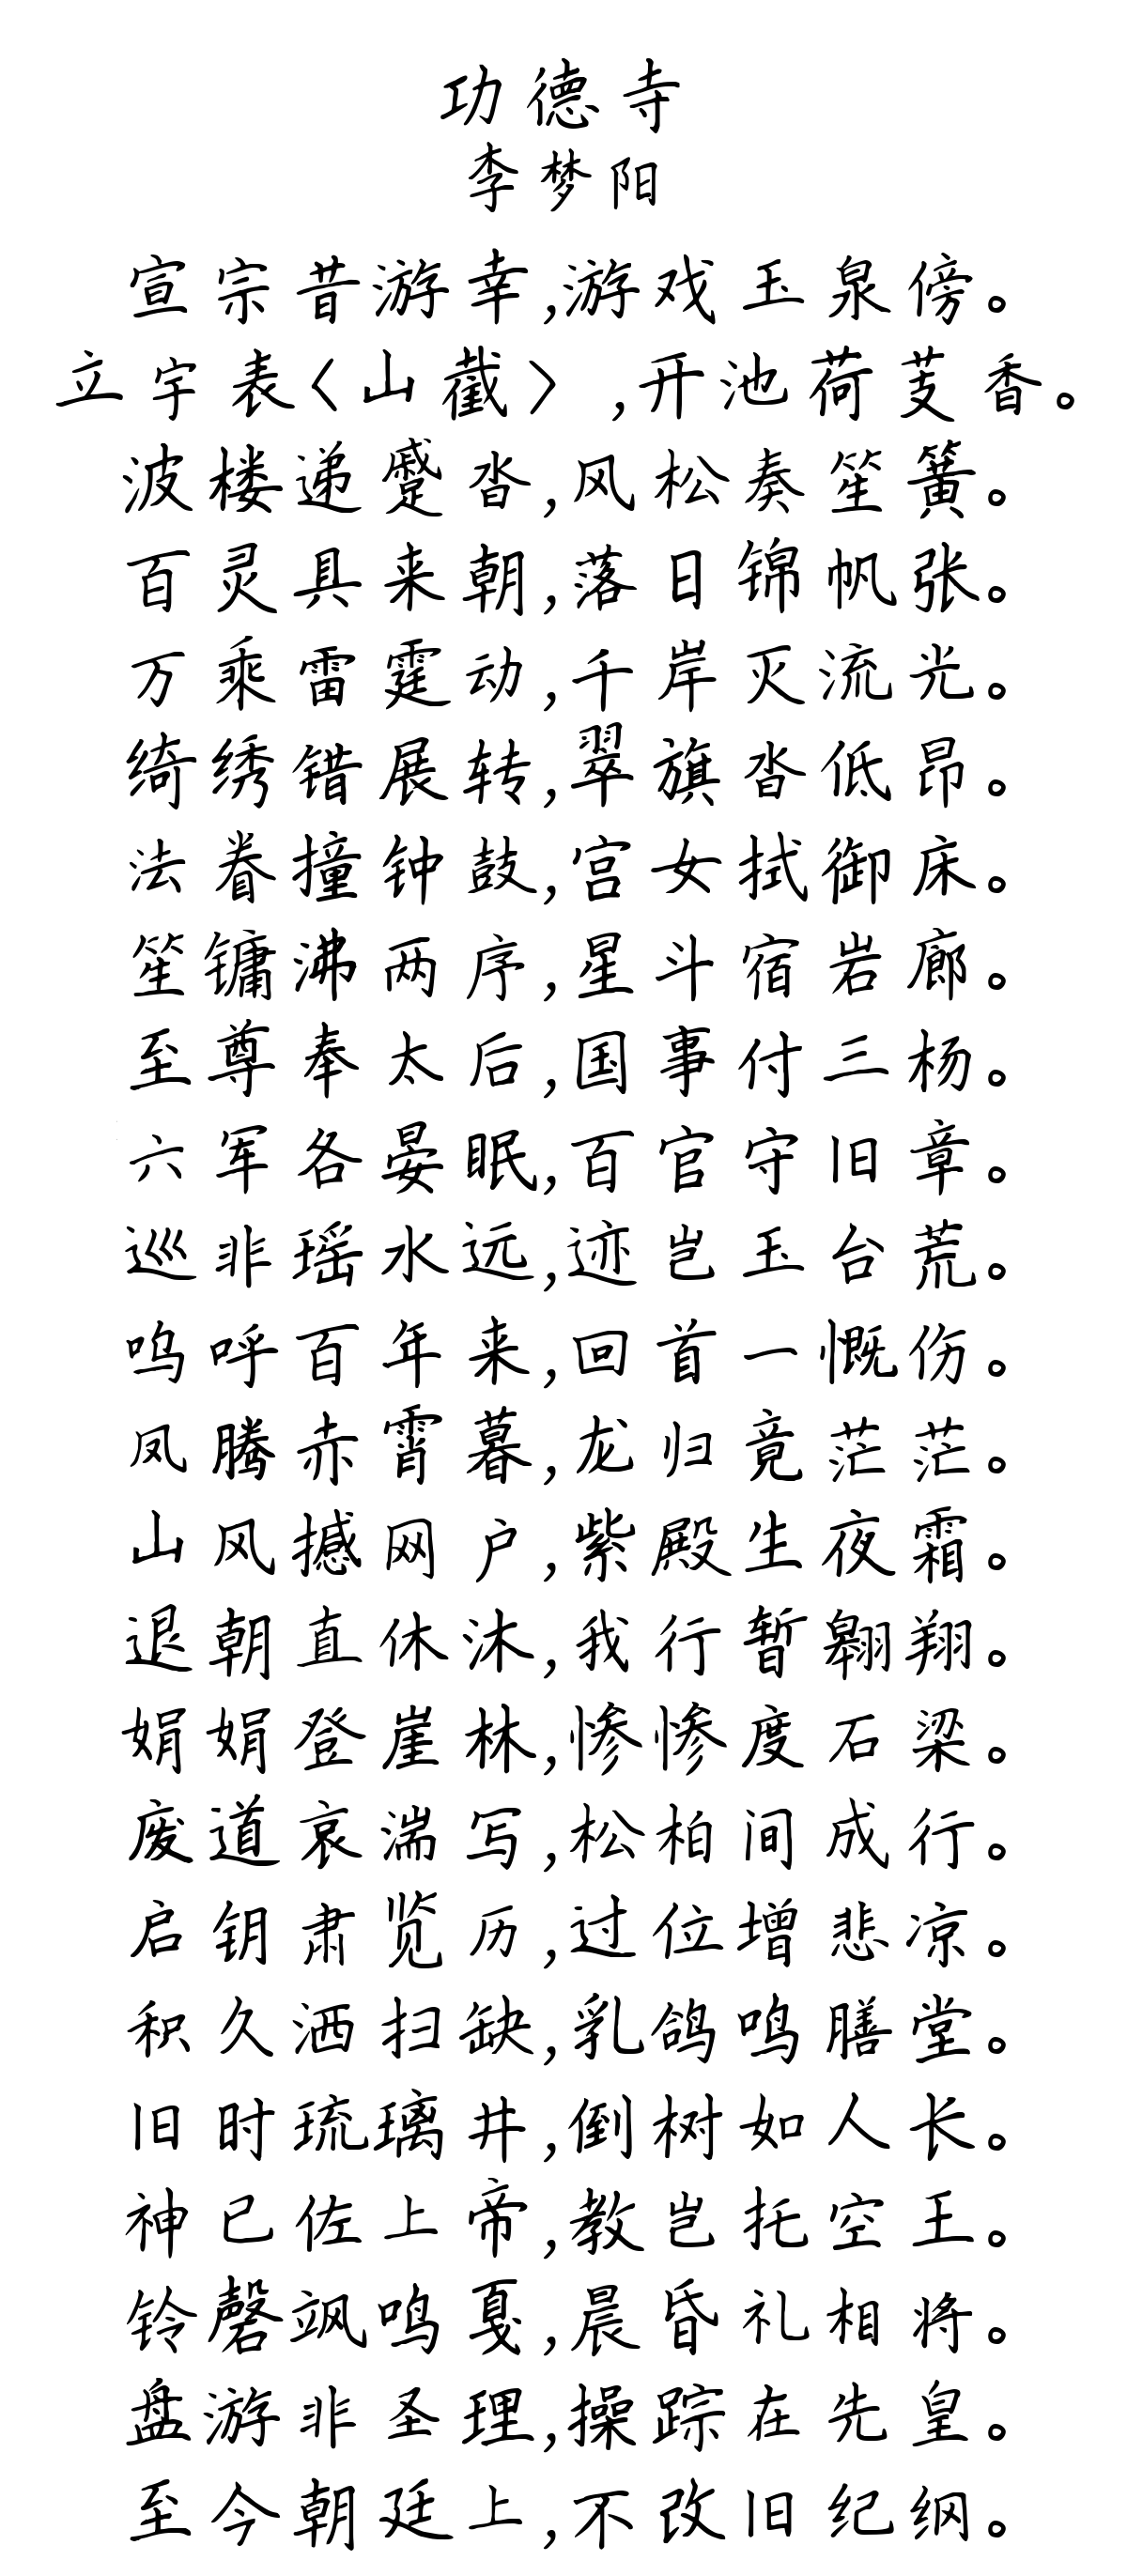 功德寺
李梦阳
宣宗昔游幸,游戏玉泉傍。
立宇表〈山截〉,开池荷芰香。
波楼递蹙沓,风松奏笙簧。
百灵具来朝,落日锦帆张。
万乘雷霆动,千岸灭流光。
绮绣错展转,翠旗沓低昂。
法眷撞钟鼓,宫女拭御床。
笙镛沸两序,星斗宿岩廊。
至尊奉太后,国事付三杨。
六军各晏眠,百官守旧章。
巡非瑶水远,迹岂玉台荒。
呜呼百年来,回首一慨伤。
凤腾赤霄暮,龙归竟茫茫。
山风撼网户,紫殿生夜霜。
退朝直休沐,我行暂翱翔。
娟娟登崖林,惨惨度石梁。
废道哀湍写,松柏间成行。
启钥肃览历,过位增悲凉。
积久洒扫缺,乳鸽鸣膳堂。
旧时琉璃井,倒树如人长。
神已佐上帝,教岂托空王。
铃磬飒鸣戛,晨昏礼相将。
盘游非圣理,操踪在先皇。
至今朝廷上,不改旧纪纲。